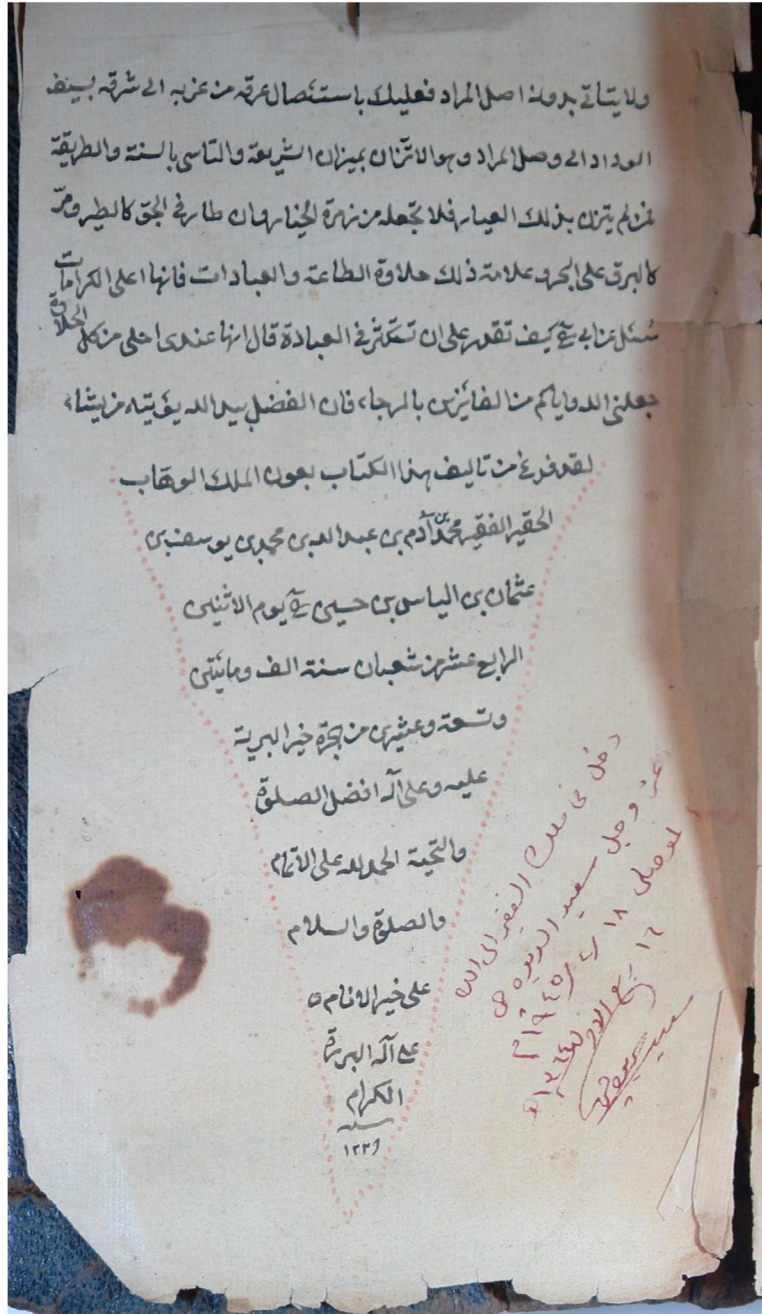 ولا يتاتى بدونه اصل المراد فعليك باستئصال عرقه من غربه الى شرقه بسيف
الوداد الى وصل المراد وهو الاتزان بميزان الشريعة والتاسى بالسنة والطريقة
فمن لم يتزن بذلك العيار فلا تجعله من زمرة الخيار وان طار فى الجو كالطير ومرّ
كالبرق على البحر وعلامة ذلك حلاوة الطاعة والعبادات فانها اعلى الكرامات
سُئل عن ابى كيف تقدر على ان تكثر فى العبادة قال انها عندى احلى من كل الحلاوة
جعلنى الله واياكم من الفائزين بالرجاء فان الفضل بيد الله يؤتيه من يشاء
لقد فرغ من تاليف هذا الكتاب بعون الملك الوهاب
الحقير الفقير محمد بن آدم بن عبد الله بن محمد بن يوسف بن
عثمان بن الياس بن حسين فى يوم الاثنين
الرابع عشر من شعبان سنة الف ومائتى
وتسعة وعشرين من هجرة خير البرية
عليه وعلى آله افضل الصلوة
والتحية الحمد لله على الاتمام
والصلوة والسلام
على خير الانام و
على آله البررة
الكرام
سنه
دخل فى ملك الفقير الى الله
عز وجل سعيد الديوه جى
الموصلى ١٨ / ٢ / ١٩٤٥م
١٦ ربيع الاول ١٣٦٤هـ